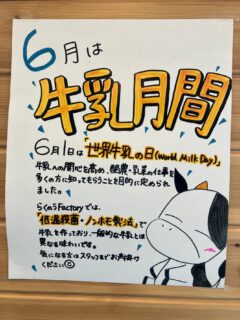 6月は
牛乳月間
6月1日は「世界牛乳の日(World Milk Day)」
牛乳への関心を高め、酪農・乳業の仕事を
多くの方に知ってもらうことを目的に定められ
ました。
らくのうFactoryでは、
「低温殺菌・ノンホモ製法」で
牛乳を作っており、一般的な牛乳とは
異なる味わいです。
気になる方はスタッフまでお声掛け
ください